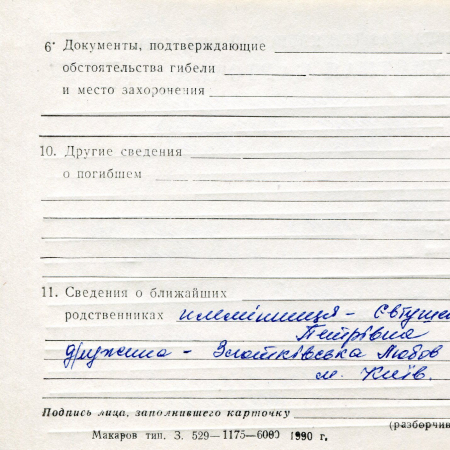 6· Документы, подтверждающие
обстоятельства гибели
и место захоронения
10. Другие сведения
о погибшем
11. Сведения о ближайших
родственниках племінниця – Євтуше
Петрівна
дружина – Златківська Любов
м. Київ.
Подпись лица, заполнившего карточку
(разборчив
Макаров тип. З. 529—1175—6000 1990 г.